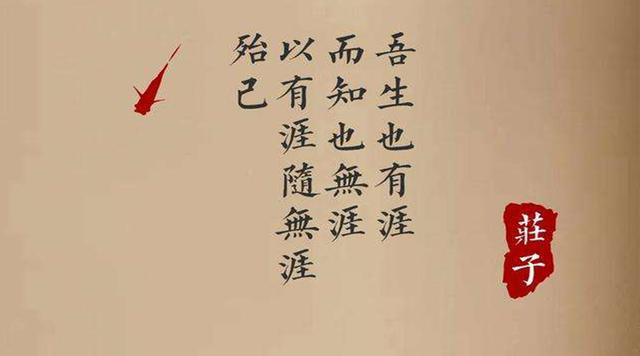 吾生也有涯
而知也無涯
以有涯隨無涯
殆己
莊子